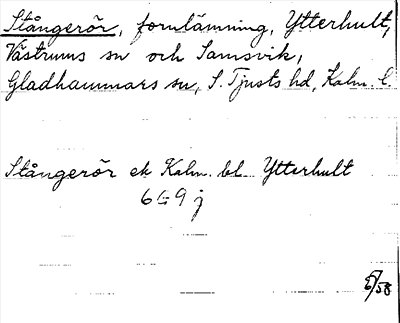 Stångerör, fornlämning, Ytterhult,
Västrums sn och Samsvik,
Gladhammars sn, S. Tjusts hd, Kalm. l.
Stångerör ek Kalm. bl. Ytterhult
6G9j
/58